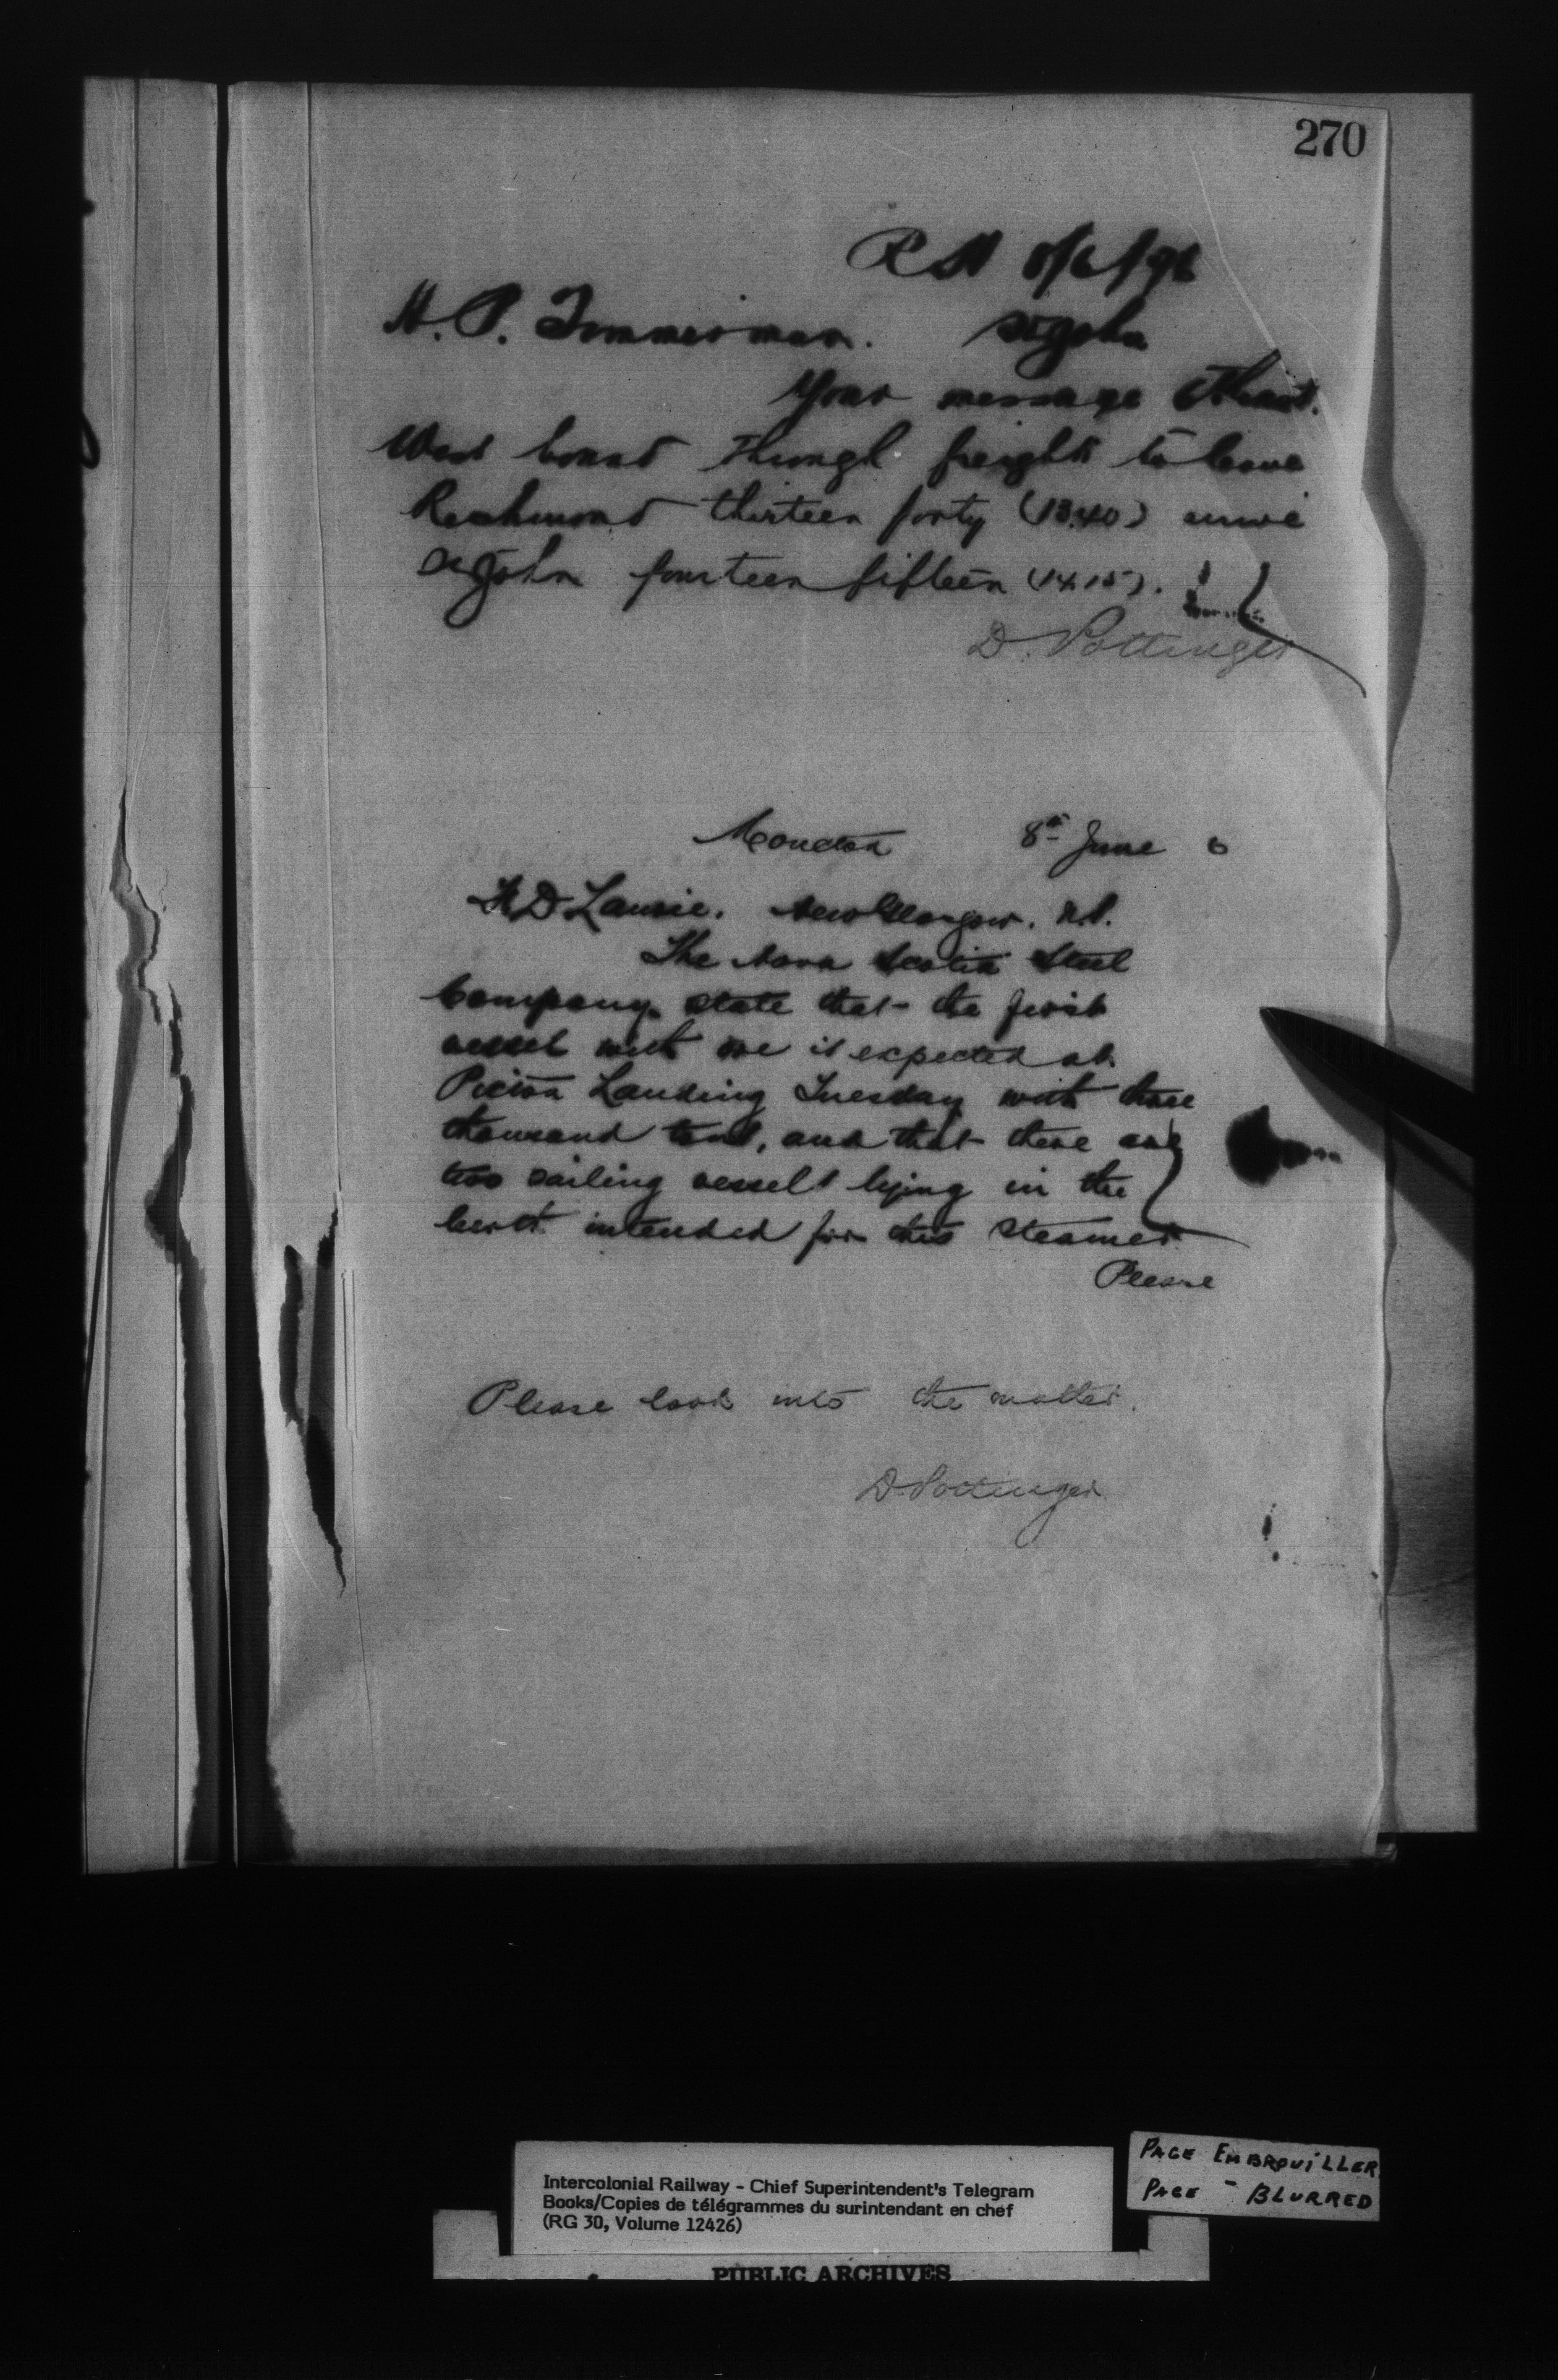 270
8/6/96
H. P. Timmerman. St John
Your message
West bound through freight to leave
Richmond thirteen forty (13.40) arrive
St John fourteen fifteen (14.15).
D. Pottinger
Moncton 8th June 6
Laurie. New Glasgow. N.S.
The Nova Scotia Steel
Company state that the first
vessel with ore is expected at
Pictou Landing Tuesday with three
thousand tons, and that there are
two sailing vessels lying in the
berth intended for this steamer
Please
Please look into the matter.
D. Pottinger
PAGE EMBROUILLER
PAGE - BLURRED
Intercolonial Railway - Chief Superintendent's Telegram
Books/Copies de télégrammes du surintendant en chef
(RG 30, Volume 12426)
PUBLIC ARCHIVES